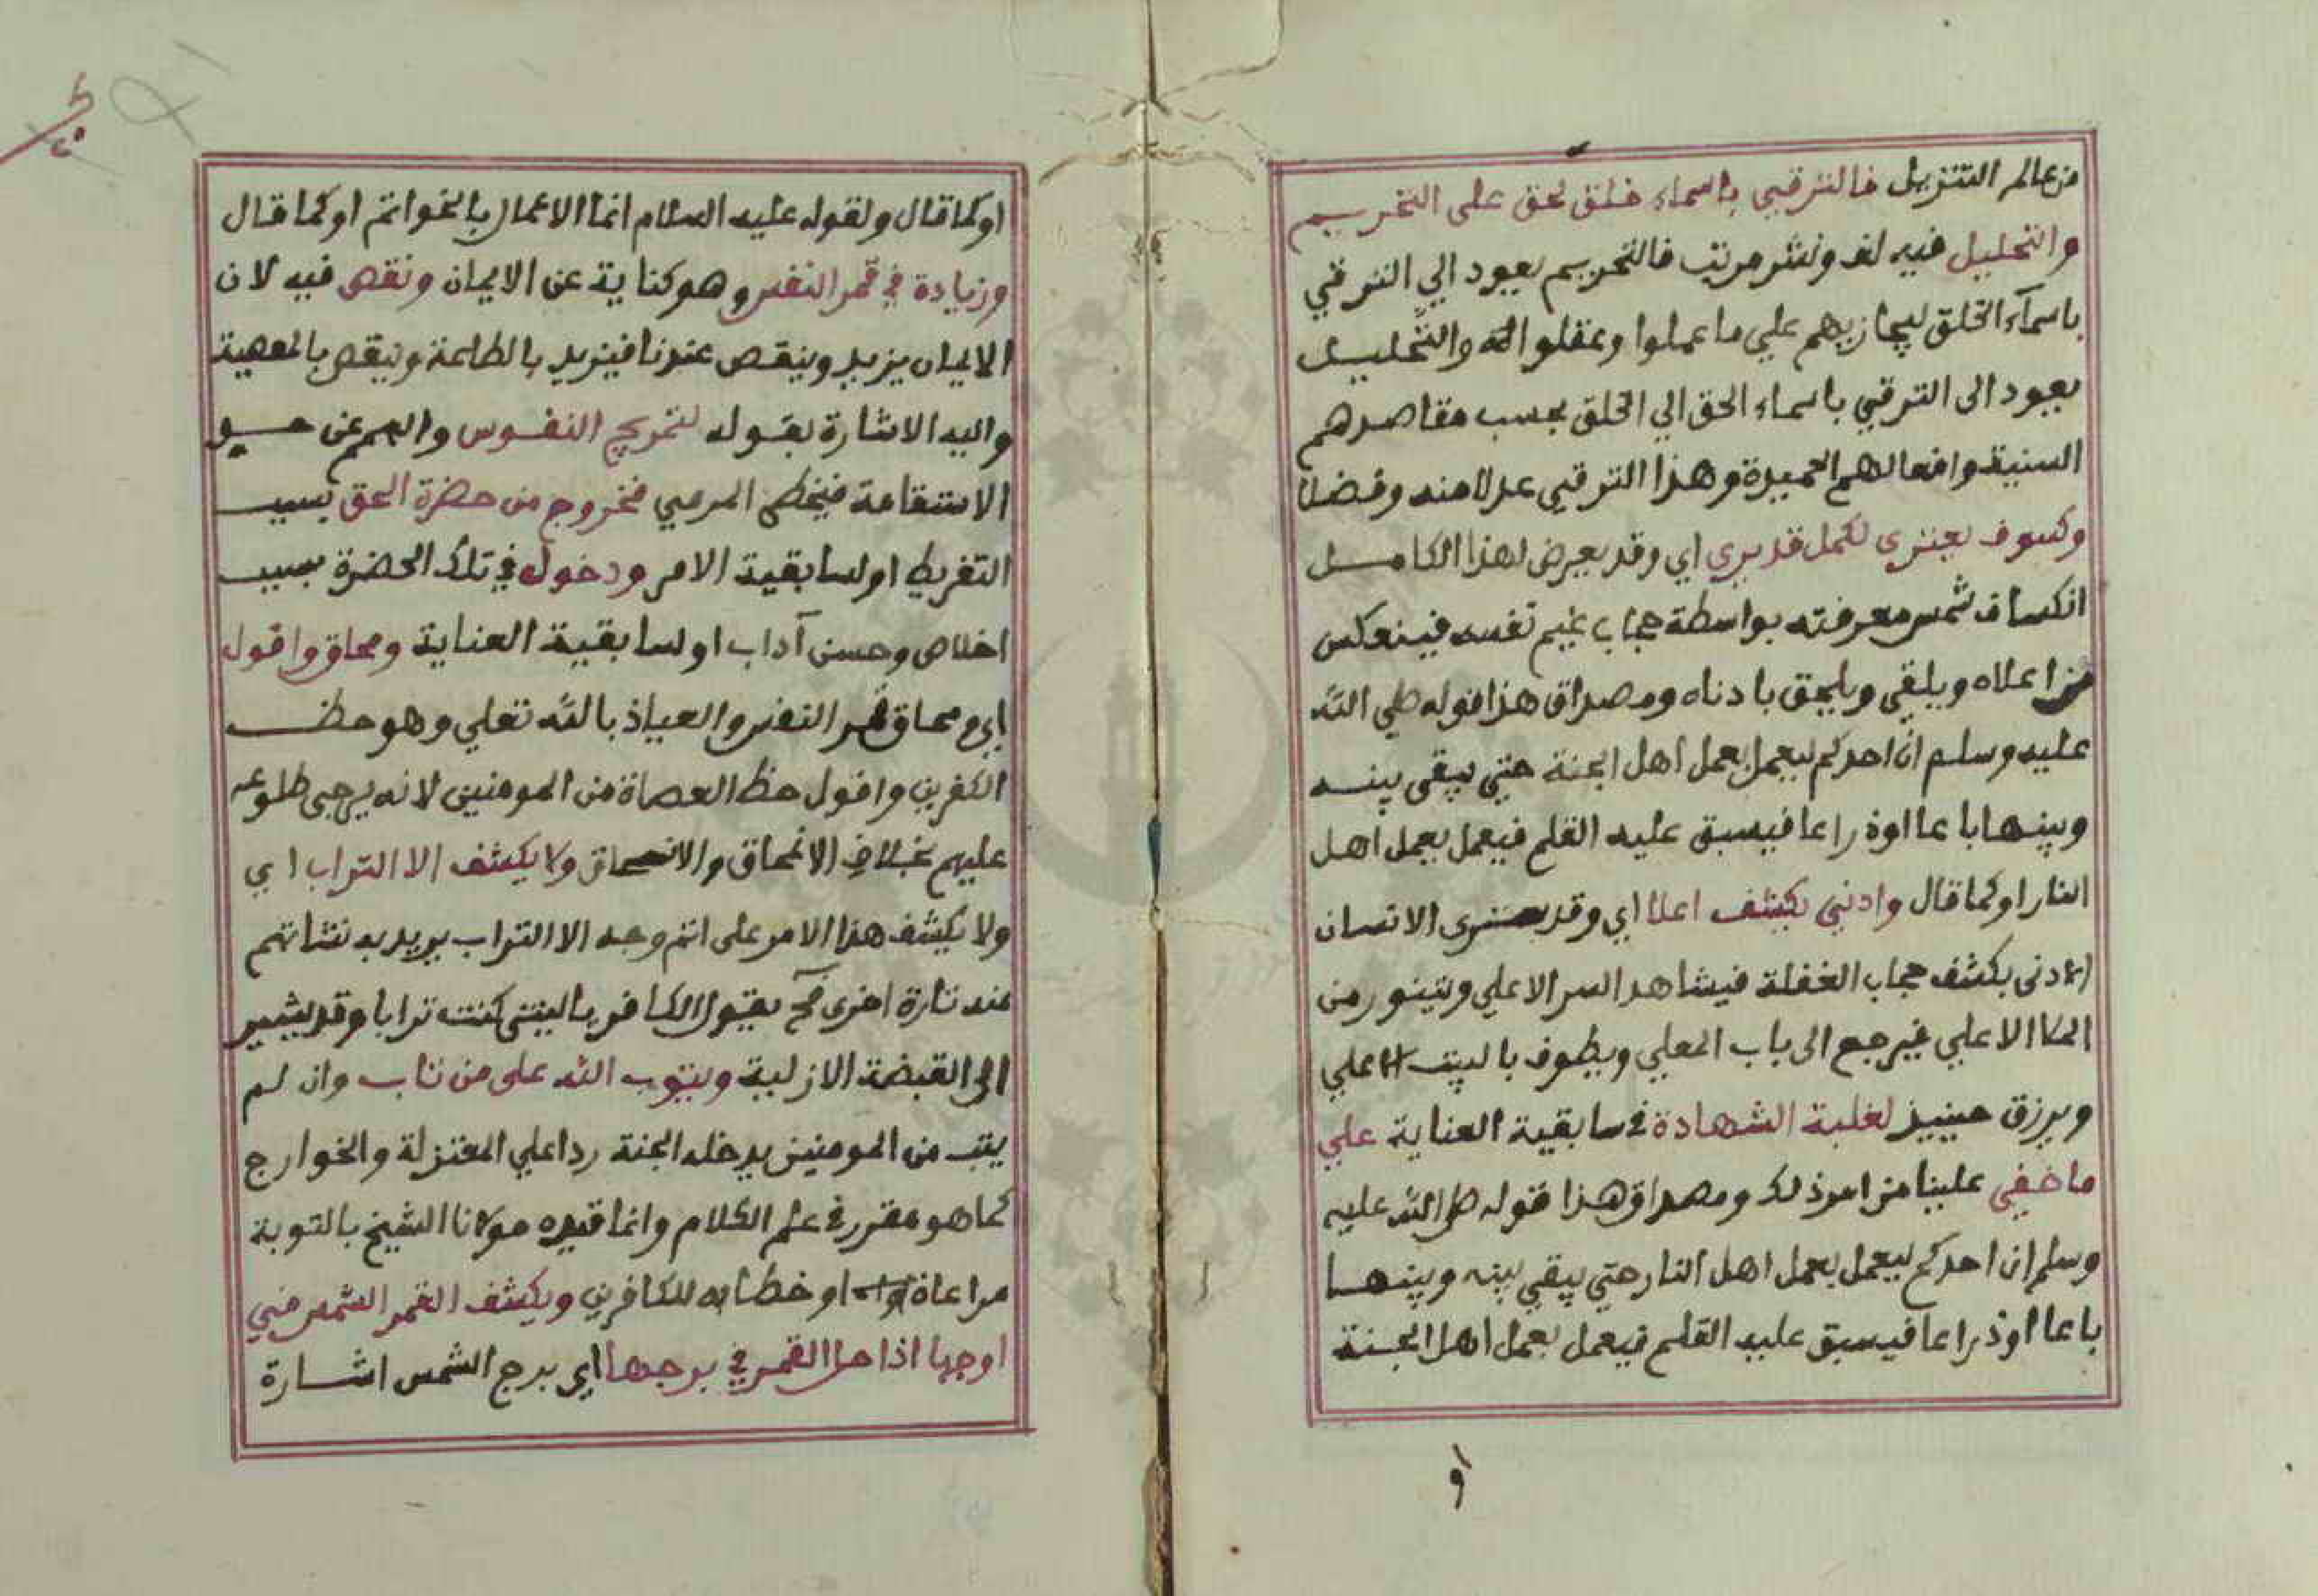 من عالم التنزيل فالترقي باسماء خلق لحق على التحريم
والتحليل فيه لف ونشر مرتب فالتحريم يعود الي الترقي
باسمآء الخلق ليجازيهم علي ما عملوا وعقلوا الله والتحليل
يعود الى الترقي باسماء الحق الي الخلق بحسب مقاصدهم
السنية وافعالهم الحميدة وهذا الترقي عدلا منه وفضلا
وكسوف يعتري لكمل قد يري اي وقد يعرض لهذا الكامل
انكساف شمس معرفته بواسطة حجاب غيم نفسه فينعكس
من اعلاه ويلقي ويلحق بادناه ومصداق هذا قوله صلي الله
عليه وسلم ان احدكم ليعمل بعمل اهل الجنة حتي يبقى بينه
وبينها باعا اوذراعا فيسبق عليه القلم فيعمل بعمل اهل
النار اوكما قال وادني بكشف اعلا اي وقد يعتري الانسان
الادنى بكشف حجاب الغفلة فيشاهد السر الاعلي ويتنور من
الملا الاعلي فيرجع الى باب المعلي ويطوف بالبيت الاعلي
ويرزق حينيذ لغلبة الشهادة في سابقية العناية علي
ما خفي علينا من امر ذلك ومصداق هذا قوله صلى الله عليه
وسلم ان احدكم ليعمل بعمل اهل النار حتي يبقي بينه وبينها
باعا اوذراعا فيسبق عليه القلم فيعمل بعمل اهل الجنة
او
اوكما قال ولقوله عليه السلام انما الاعمال بالخواتم اوكما قال
وزيادة في قمر النفس وهو كناية عن الايمان ونقص فيه لان
الايمان يزيد وينقص عندنا فيزيد بالطاعة وينقص بالمعصية
واليه الاشارة بقوله لتمريج النفوس والهم عن حد
الاستقامة فيخطى المرمي فخروج من حضرة الحق بسبب
التفريط او لسابقية الامر ودخول في تلك الحضرة بسبب
اخلاص وحسن آداب او لسابقية العناية ومحاق وافول
اي محاق قمر النفس والعياذ بالله تعلي وهو حظ
الكفرين وافول حظ العصاة من المومنين لانه يرجى طلوعه
عليهم بخلاف الانمحاق والانمحاق ولا يكشف الا التراب اي
ولا يكشف هذا الامر على اتم وجه الا التراب يريد به نشاتهم
عنه تارة اخرى فح يقول الكافر ياليتني كنت ترابا وقد يشير
الى القبضة الازلية ويتوب الله على من تاب وان لم
يتب من المومنين يدخله الجنة ردا علي المعتزلة والخوارج
كما هو مقرر في علم الكلام وانما قيده مولانا الشيخ بالتوبة
مراعاة او خطابه للكافرين ويكشف القمر الشمس في
اوجها اذا حل القمر في برجها اي برج الشمس اشارة